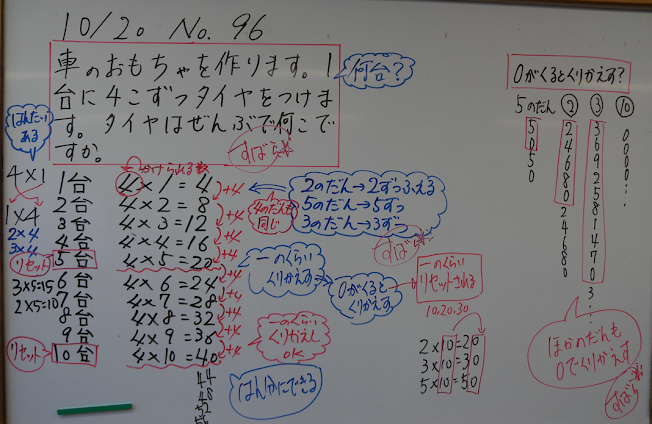 10/20 No. 96
車のおもちゃを作ります。1
台に4こずつタイヤをつけま
す。タイヤはぜんぶで何こで
すか。
何台？
すばら
はんたいも
ある
4×1
1×4
2×4
3×4
リセット
3×5=15
2×5=10
リセット
かけられる数
1台 4×1=4
2台 4×2=8
3台 4×3=12
4台 4×4=16
5台 4×5=20
6台 4×6=24
7台 4×7=28
8台 4×8=32
9台 4×9=36
10台 4×10=40
44
48
52
56
+4
+4
+4
+4
+4
+4
+4
+4
+4
4のだんも
同じ
2のだん→2ずつふえる
5のだん→5ずつ
3のだん→3ずつ
すばら
一のくらい
くりかえす
0がくると
くりかえす
一のくらい
リセットされる
10,20,30
一のくらい
くりかえし
OK
はんかにできる
2×10=20
3×10=30
5×10=50
0がくるとくりかえす？
5のだん ② ③ ⑩
5
0
5
0
2
4
6
8
0
2
4
6
8
0
3
6
9
2
5
8
1
4
7
0
3
0
0
0
0
ほかのだんも
0でくりかえす
すばら